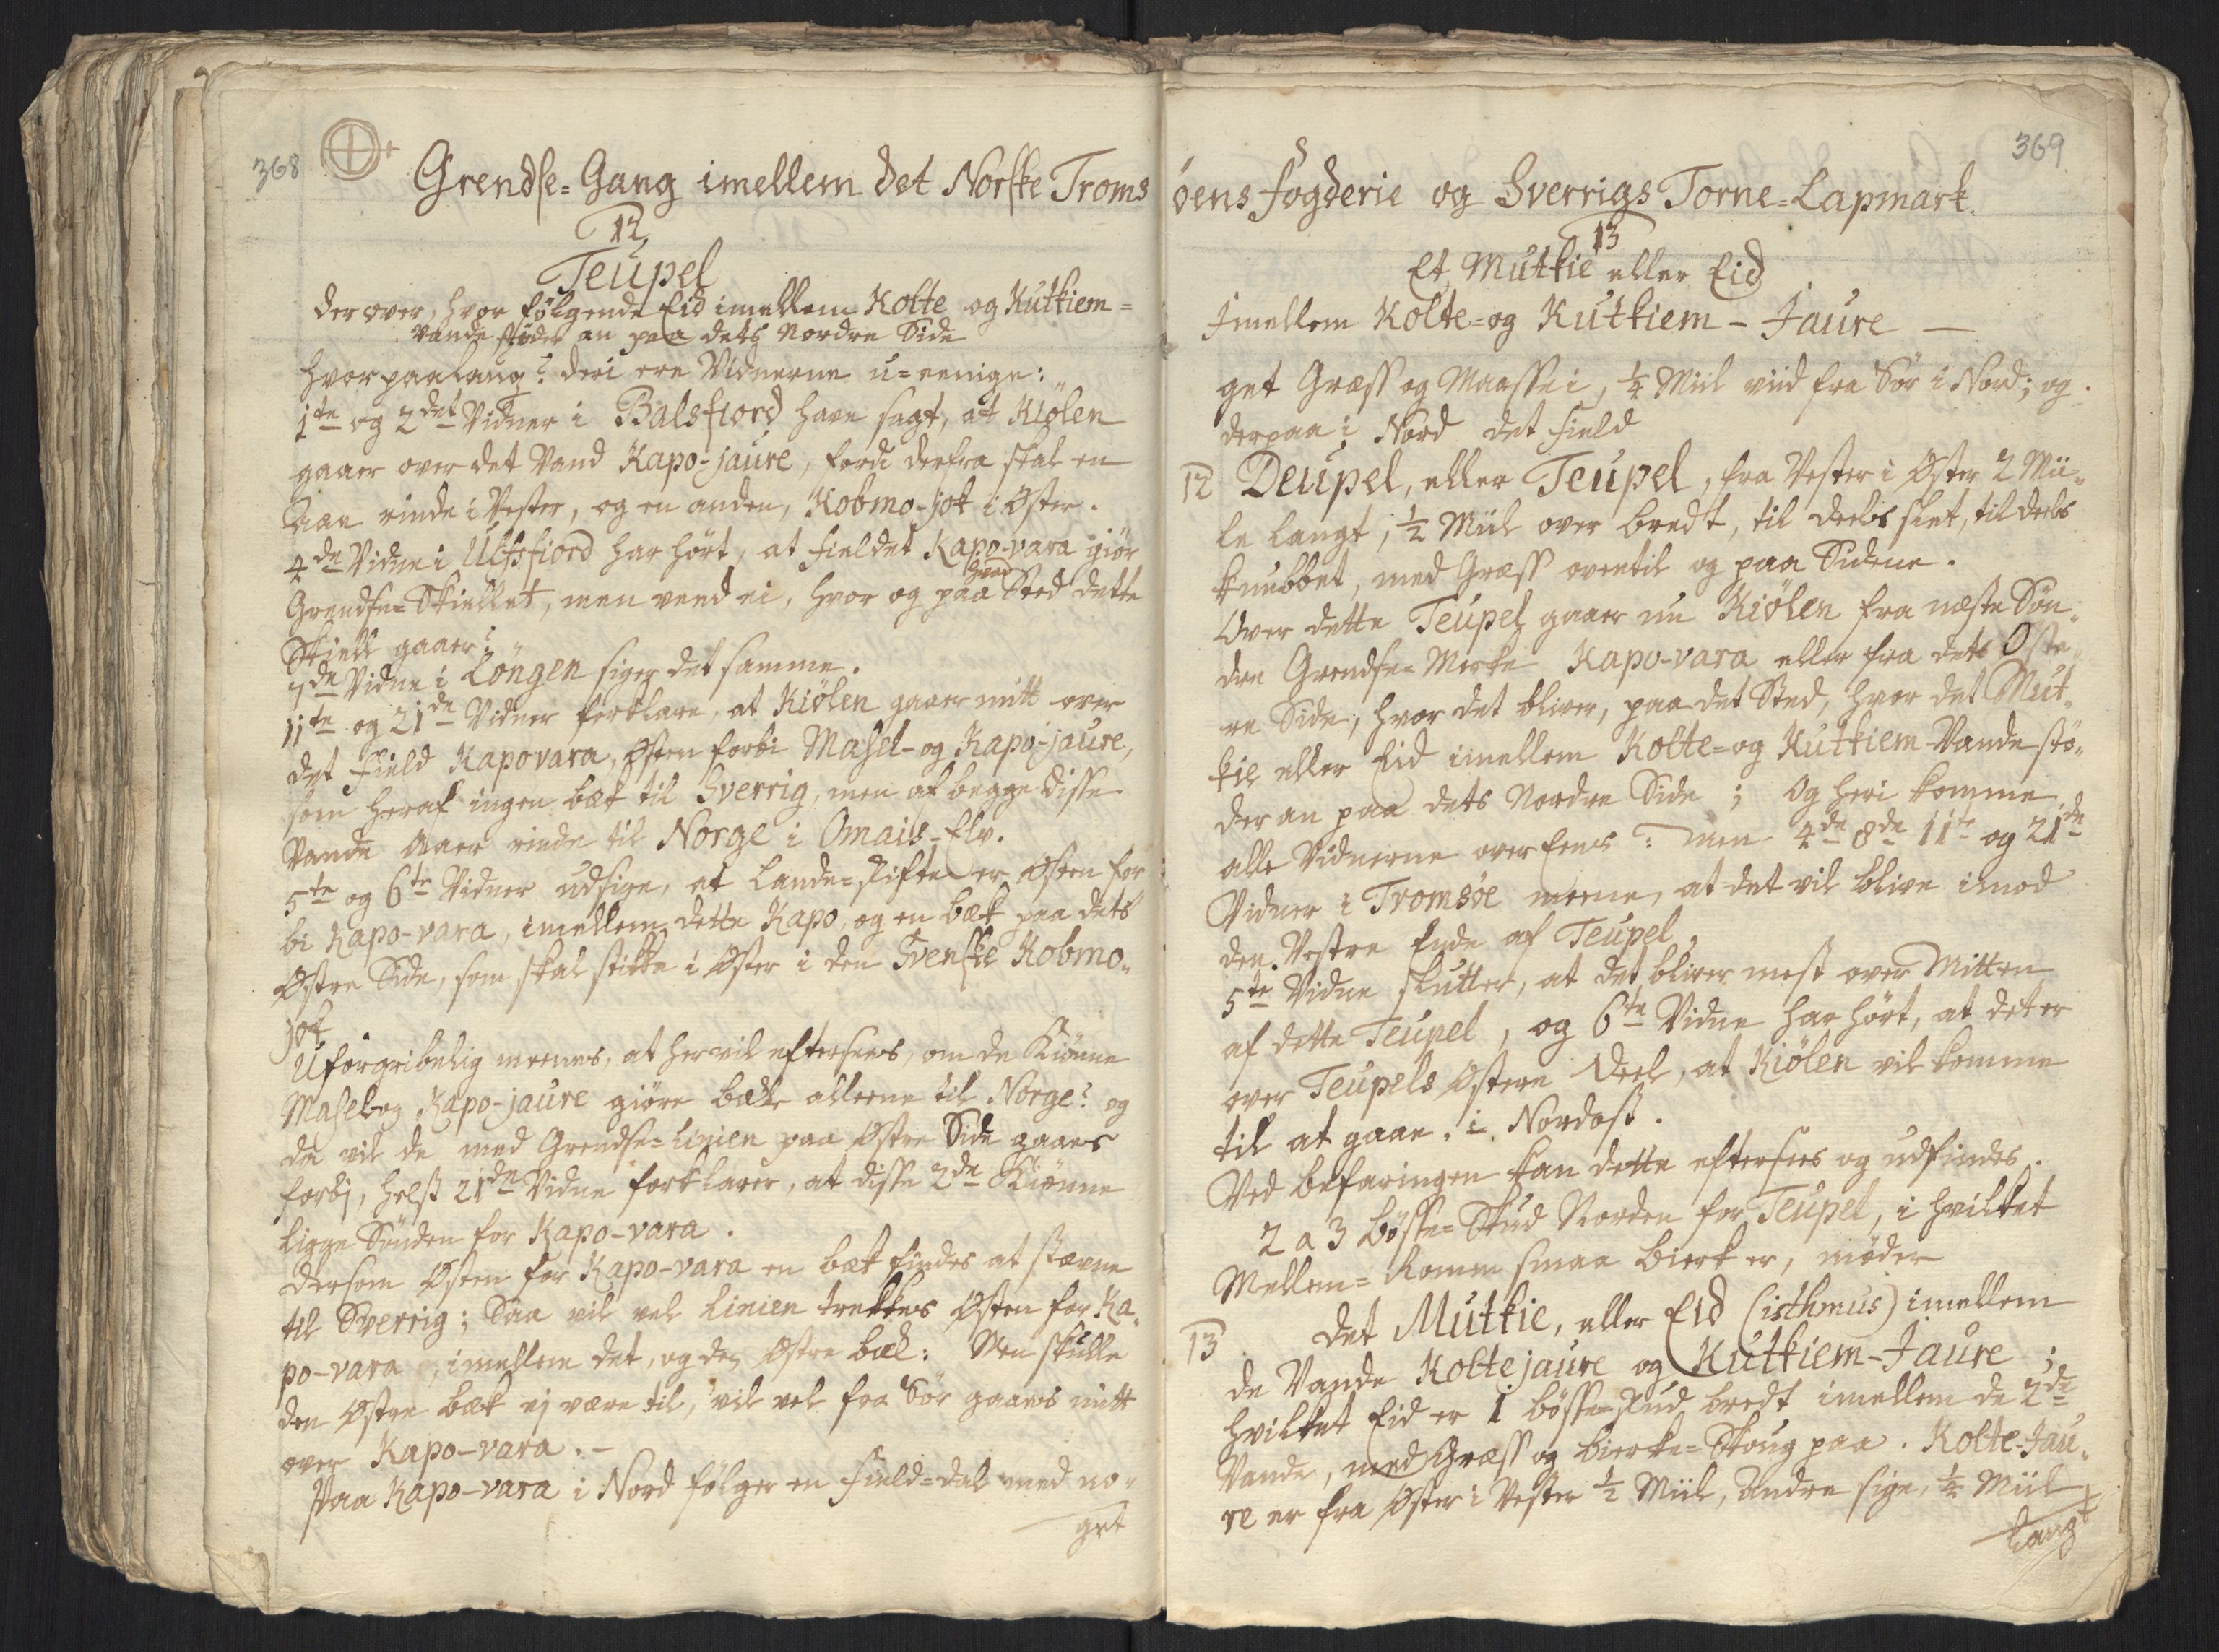 368
Grendse=Gang imellem det Norske Troms
12
Teupel
derover, hvor følgende Eid imellem Kolte og Kutkiem=
Vande støder an paa dets Nordre Side
hvorpaalaug? deri ere Vidnerne u=eenige:
1te og 2det Vidner i Balsfiord have sagt, at Kiölen
gaaer over det Vand Kapo-jaure, fordi derfra skal en
Aae rinde i Vester, og en anden, Kobmo-jok i Öster.
4de Vidne i Ulfsfiord har hört, at Fieldet Kapo-vara giör
Grendse=Skiellet, men veed ei, hvor og paa hvad Sted dette
Skiell gaaer:
7de Vidne i Löngen siger det samme.
11te og 21de Vidner forklare, at Kiölen gaaer mitt over
det Field Kapovara, Östen forbi Masel- og Kapo-jaure,
som heraf ingen bæk til Sverrig, men af begge disse
Vande Aaer rinde til Norge i Omais-Elv.
5te og 6te Vidner udsige, at Lande=skifte er Östen for
bi Kapo-vara, imellem dette Kapo, og en bæk paa dets
Östre Side, som skal stikke i Öster i den Svenske Kobmo-
jok
Uforgribelig meenes, at her vil eftersees, om de Kiönne
Masel og Kapo-jaure giöre bæk alleene til Norge? og
da vil de med Grendse=Linien paa Östre Side gaaes
forbj, helst 21de Vidne forklarer, at disse 2de Kiönne
ligge Sönden for Kapo-vara.
Dersom Östen for Kapo-vara en bæk findes at stævne
til Sverrig; Saa vil vel Linien trekkes Östen for Ka-
po-vara, imellem det, og den Östre bæk: Men skulle
den Östre bæk ej være til, vil vel fra Sör gaaes mitt
over Kapo-vara.-
Paa Kapo-vara i Nord fölger en Field=dal med no-
get
369
öens Fogderie og Sverrigs Torne=Lapmark.
13
Et Mutkie eller Eid
Imellem Kolte=og Kutkiem-Jaure —
get Græss og Maasse i, ¼ Miil viid fra Sör i Nord; og
derpaa i Nord det Field
12 Deupel, eller Teupel, fra Vester i Öster 2 Mii-
le langt, ½ Miil over bredt, til deels slet, til deels
knubbet, med Græss oventil og paa Siderne.
Over dette Teupel gaaer nu Kiölen fra næste Sön-
dre Grendse=Merke Kapo-vara eller fra dets Öste-
re Side, hvor det bliver, paa det Sted, hvor det Mut-
kie eller Eid imellem Kolte=og Kutkiem-Vande stö-
der an paa dets Nordre Side; Og heri komme
alle Vidnerne overeens: Men 4de 8de 11te og 21de
Vidner i Tromsöe meene, at det vil blive imod
den Vestre Ende af Teupel.
5te Vidne slutter, at det bliver mest over Mitten
af dette Teupel, og 6te Vidne har hört, at det er
over Teupels Östere Deel, at Kiölen vil komme
til at gaae. i Nordost.
Ved befaringen kan dette eftersees og udfindes.
2 a 3 bösse=Skud Norden for Teupel, i hvilket
Mellem=Romm smaa bierk er, möder
13 det Mutkie, eller Eid (isthmus) imellem
de Vande Koltejaure og Kutkiem-Jaure;
hvilket Eid er 1 bösse=skud bredt imellem de 2de
Vande, med Græss og bierke=Skoug paa. Kolte-Jau-
re er fra Öster i Vester ½ Miil, Andre sige, ¼ Miil
langt